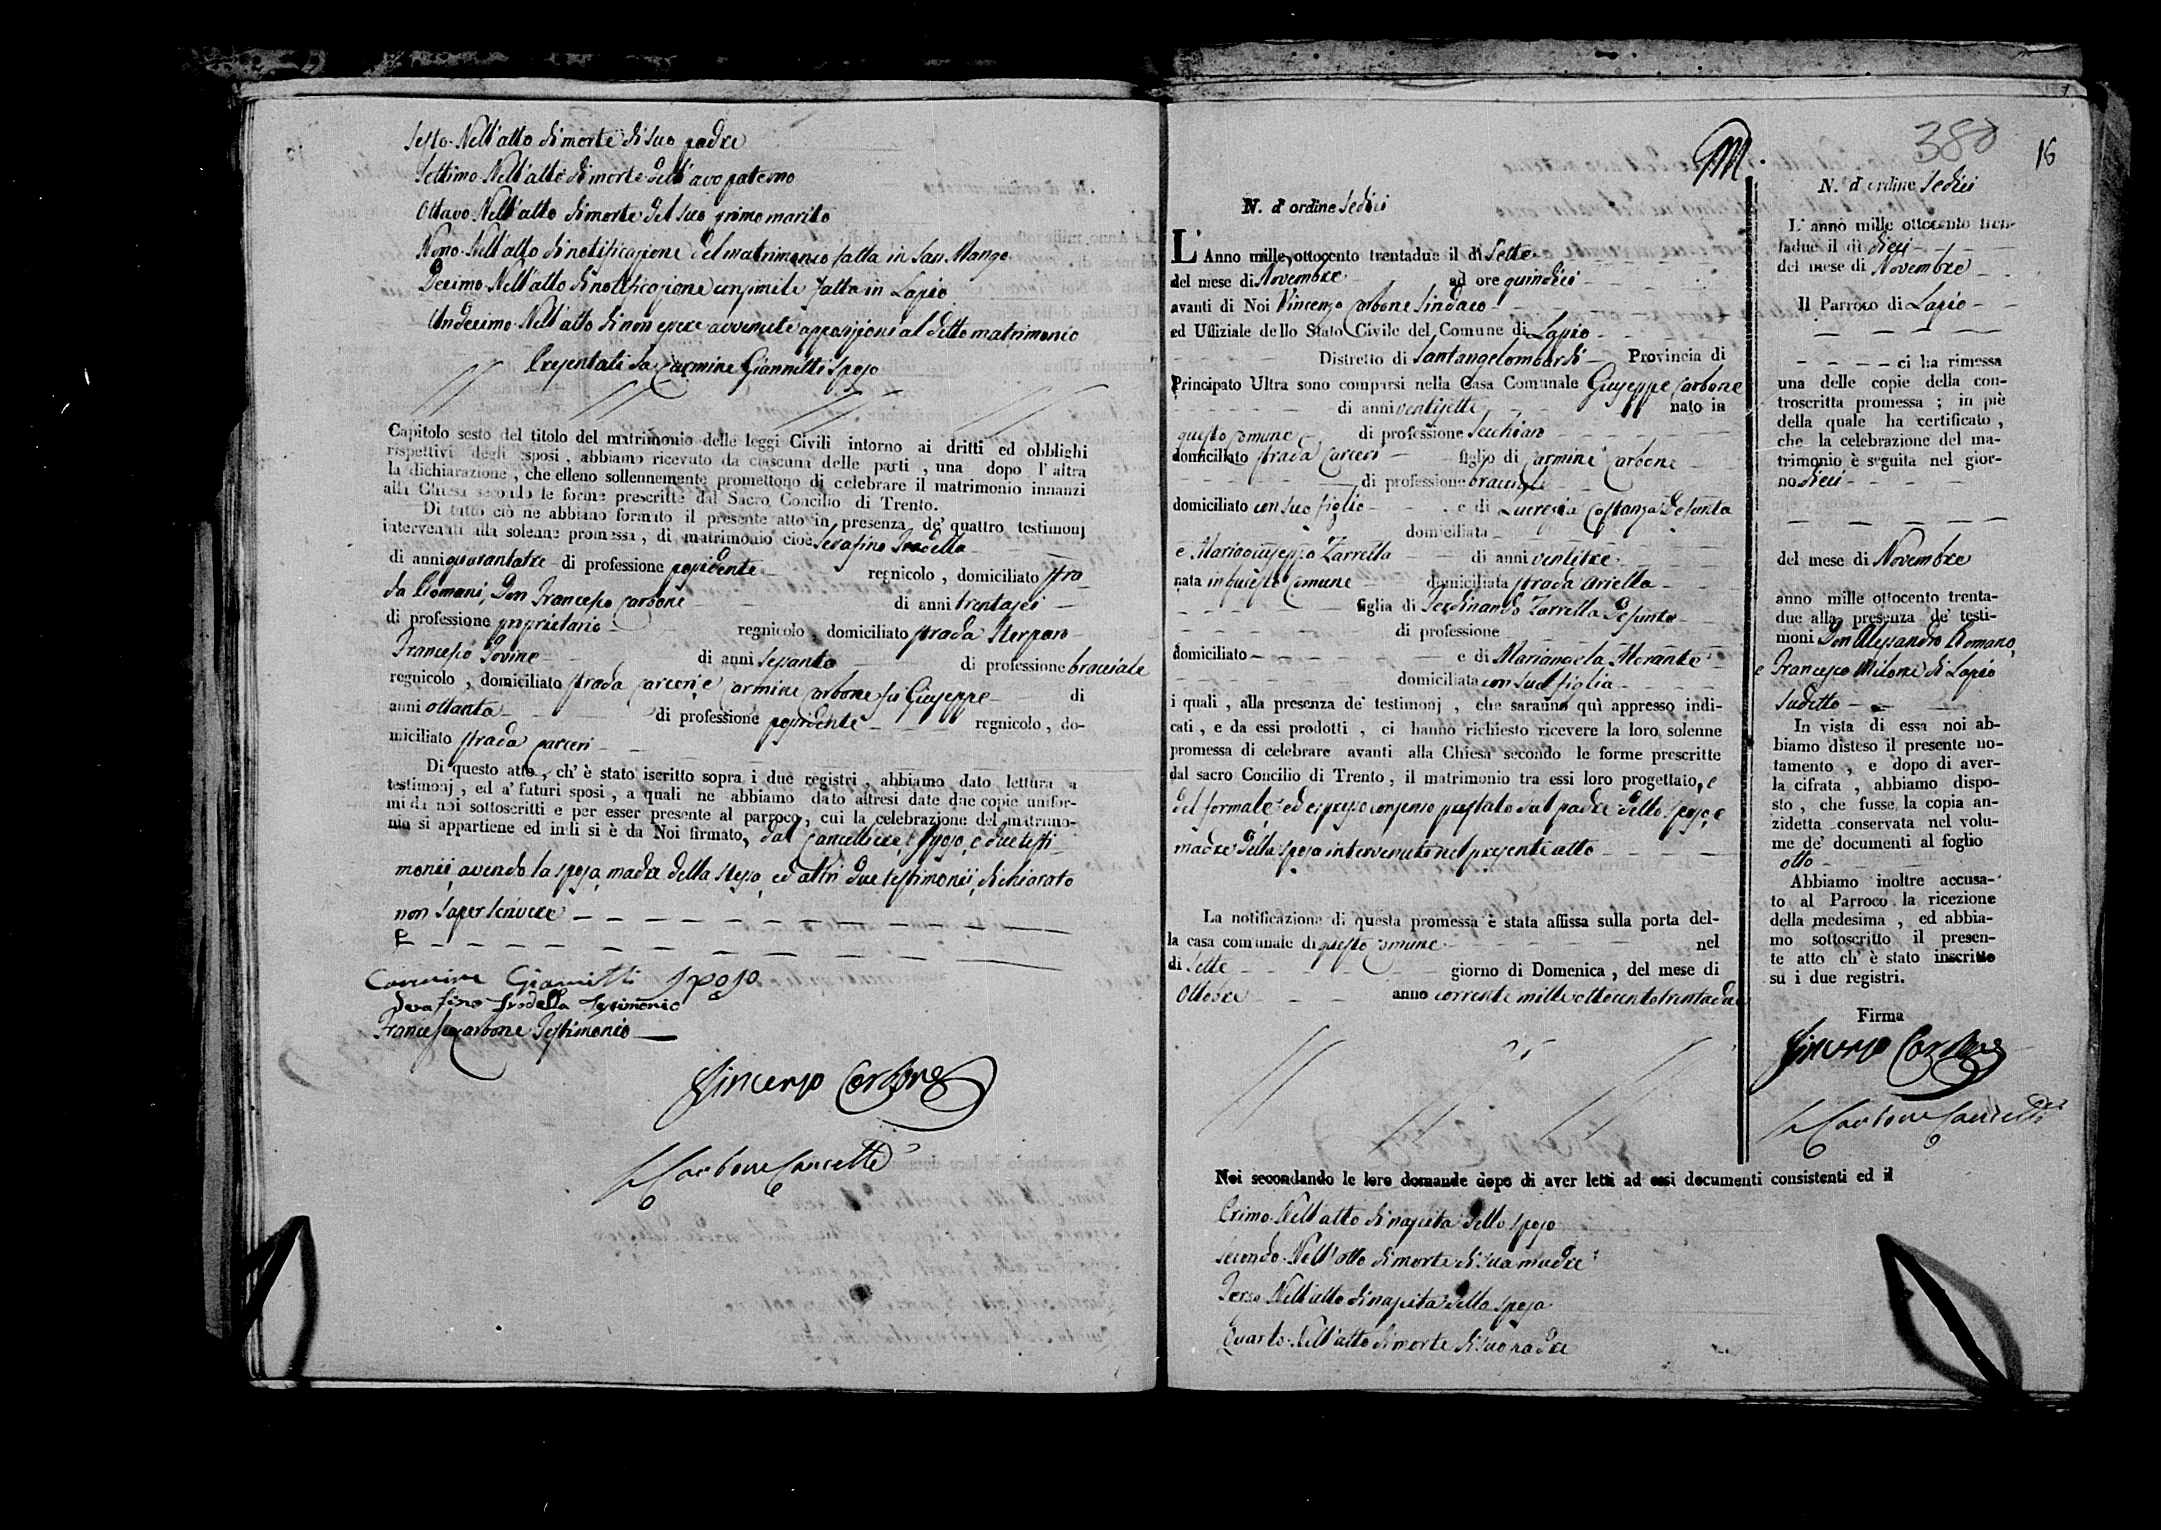 Sesto. Nell'atto di morte di suo padre
Settimo. Nell'atto di morte dell'avo paterno
Ottavo. Nell'atto di morte del suo primo marito
Nono. Nell'atto di notificazione del matrimonio fatta in San Mango
Decimo. Nell'atto di notificazione consimile fatta in Lapio
Undecimo. Nell'atto di non essere avvenute opposizione al detto matrimonio
Presentati da Carmine Giannitti sposo
Capitolo sesto del titolo del matrimonio delle leggi Civili intorno ai dritti ed obblighi
rispettivi degli sposi, abbiamo ricevuto da ciascuna delle parti, una dopo l'altra
la dichiarazione, che elleno sollennemente promettono di celebrare il matrimonio innanzi
alla Chiesa secondo le forme prescritte dal Sacro Concilio di Trento.
Di tutto ciò ne abbiano formato il presente atto in presenza de' quattro testimonj
intervenuti alla solenne promessa, di matrimonio cioè Serafino Frodella
di anni quarantatre di professione possidente regnicolo, domiciliato stra
da Romani, Don Francesco Carbone di anni trentasei
di professione proprietario regnicolo, domiciliato strada
Francesco Iovine di anni sessanta di professione bracciale
regnicolo, domiciliato strada Carceri, e Carmine Carbone fu Giuseppe di
anni ottanta di professione possidente regnicolo, do-
miciliato strada Carceri
Di questo atto, ch'è stato iscritto sopra i due registri, abbiamo dato lettura a
testimonj, ed a' futuri sposi, a quali ne abbiamo dato altresì date due copie unifor-
mi da noi sottoscritti e per esser presente al parroco, cui la celebrazione del matrimo-
nio si appartiene ed indi si è da Noi firmato, dal Cancelliere, Sposo, e due testi
monii, avendo la sposa, madre della stessa, ed altri due testimonii, dichiarato
non saper scrivere
Carmine Giannitti sposo
Serafino Frodella Testimonio
Francesco Carbone Testimonio
Vincenzo Carbone
Carbone Cancell.
M.
380
16
N. d'ordine Sedici
L'Anno mille ottocento trentadue il dì Sette
del mese di Novembre ad ore quindici
avanti di Noi Vincenzo Carbone Sindaco
ed Uffiziale dello Stato Civile del Comune di Lapio
Distretto di Santangelombardi Provincia di
Principato Ultra sono comparsi nella Casa Comunale Giuseppe Carbone
di anni ventisette nato in
questo Comune di professione
domiciliato strada Carceri figlio di Carmine Carbone
di professione bracciale
domiciliato con suo figlio e di Lucrezia Costanza Defunta
domiciliata
e Mariagiuseppa Zarrella di anni ventitre
nata in questo Comune domiciliata strada Ariella
figlia di Ferdinando Zarrella Defunto
di professione
domiciliato e di Mariangela Morante
domiciliata con sua figlia
i quali, alla presenza de' testimonj, che saranno quì appresso indi-
cati, e da essi prodotti, ci hanno richiesto ricevere la loro solenne
promessa di celebrare avanti alla Chiesa secondo le forme prescritte
dal sacro Concilio di Trento, il matrimonio tra essi loro progettato, e
del formale, ed espresso consenso prestato dal padre dello sposo, e
madre della sposa intervenuto nel presente atto
La notificazione di questa promessa è stata affissa sulla porta del-
la casa comunale di questo Comune nel
dì Sette giorno di Domenica, del mese di
Ottobre anno corrente mille ottocento trentadue
Noi secondando le loro domande dopo di aver letti ad essi documenti consistenti ed il
Primo. Nell'atto di nascita dello sposo
Secondo. Nell'atto di morte di sua madre
Terzo. Nell'atto di nascita della sposa
Quarto. Nell'atto di morte di suo padre
N. d'ordine Sedici
L'anno mille ottocento tren-
tadue il dì dieci
del mese di Novembre
Il Parroco di Lapio
ci ha rimessa
una delle copie della con-
troscritta promessa; in piè
della quale ha certificato,
che la celebrazione del ma-
trimonio è seguita nel gior-
no dieci
del mese di Novembre
anno mille ottocento trenta-
due alla presenza de' testi-
moni Don Alessandro Romano,
e Francesco Milone di Lapio
sudetto
In vista di essa noi ab-
biamo disteso il presente no-
tamento, e dopo di aver-
la cifrata, abbiamo dispo-
sto, che fusse la copia an-
zidetta conservata nel volu-
me de' documenti al foglio
otto
Abbiamo inoltre accusa-
to al Parroco la ricezione
della medesima, ed abbia-
mo sottoscritto il presen-
te atto ch'è stato inscritto
su i due registri.
Firma
Vincenzo Carbone
Carbone Cancell.